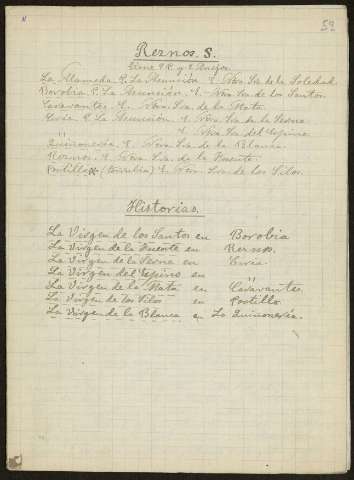 52
Reznos. S.
Tiene 9 P. y 8 Anejos
La Alameda P. La Asunción E. Ntra Sra de la Soledad
Borobia P. La Asunción. E. Ntra Sra de los Santos.
Caravantes. E. Ntra Sra de la Mata.
P. La Asunción. E. Ntra Sra de la Serna
E. Ntra Sra del Espino
Quiñonería. E. Ntra Sra de la Blanca.
Reznos. E. Ntra Sra de la Fuente.
Portillo (torrubia) E. Ntra Sra de los Silos.
Historias.
La Virgen de los Santos en Borobia
La Virgen de la Fuente en Reznos.
La Virgen de la Serna en
La Virgen del Espino en "
La Virgen de la Mata en Caravantes
La Virgen de los Silos en Portillo.
La Virgen de la Blanca en La Quiñonería.